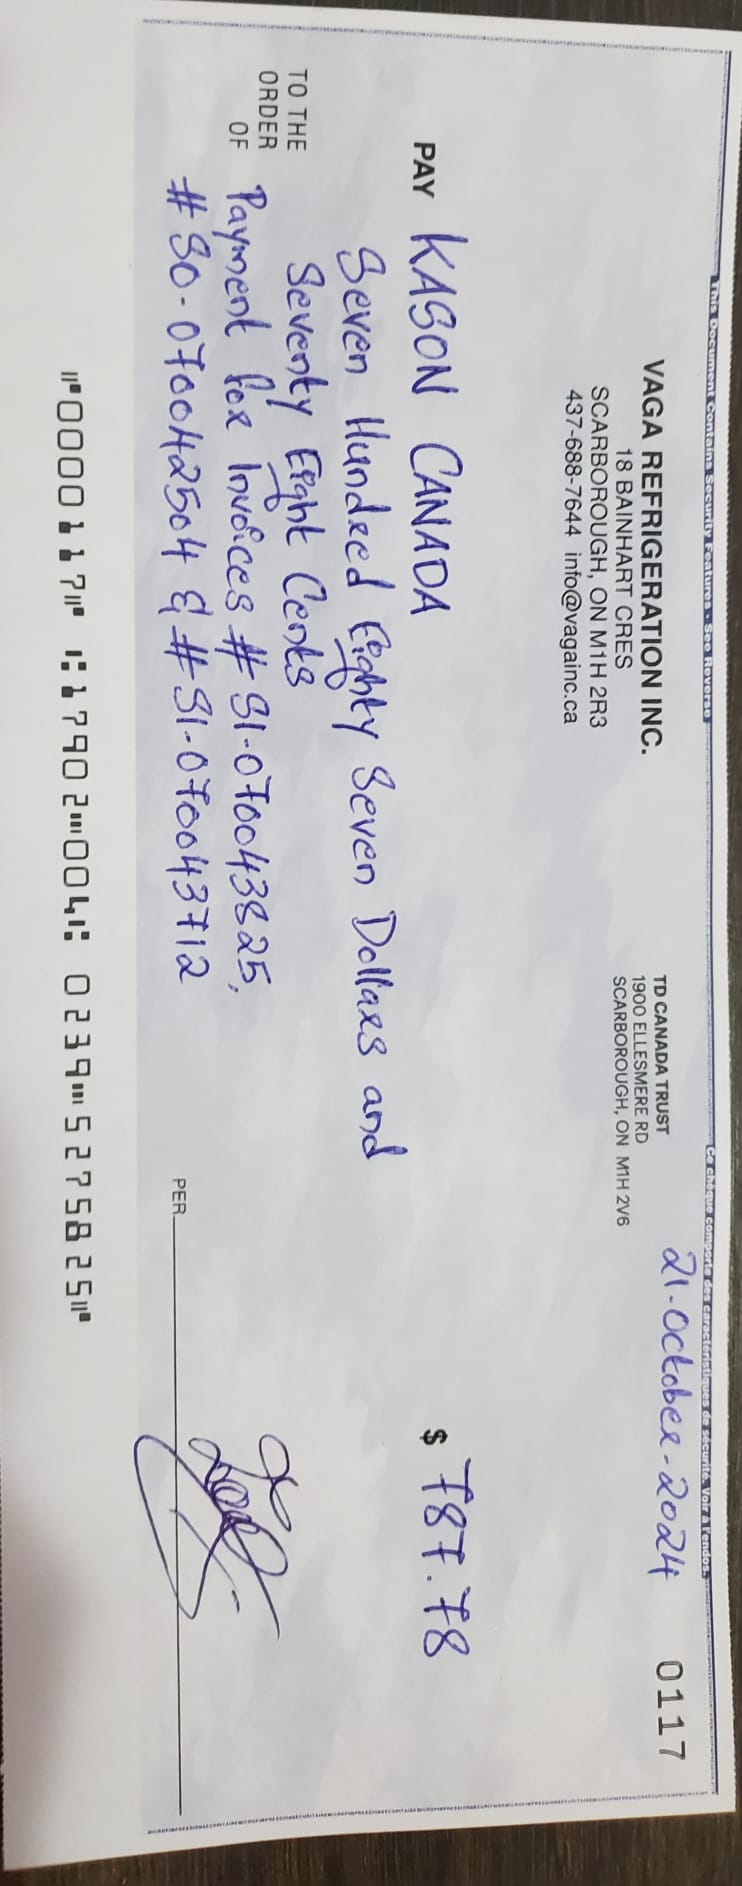 This Document Contains Security Features - See Reverse
Ce chèque comporte des caractéristiques de sécurité. Voir à l'endos.
VAGA REFRIGERATION INC.
18 BAINHART CRES
SCARBOROUGH, ON M1H 2R3
437-688-7644 info@vagainc.ca
TD CANADA TRUST
1900 ELLESMERE RD
SCARBOROUGH, ON M1H 2V6
0117
21-October-2024
PAY KASON CANADA
$ 787.78
Seven Hundred Eighty Seven Dollars and
Seventy Eight Cents
TO THE
ORDER
OF
Payment for Invoices # SI-070043825,
# SO-070042504 & # SI-070043712
PER
⑈000117⑈ ⑆17902⑉004⑆ 0239⑉5275825⑈